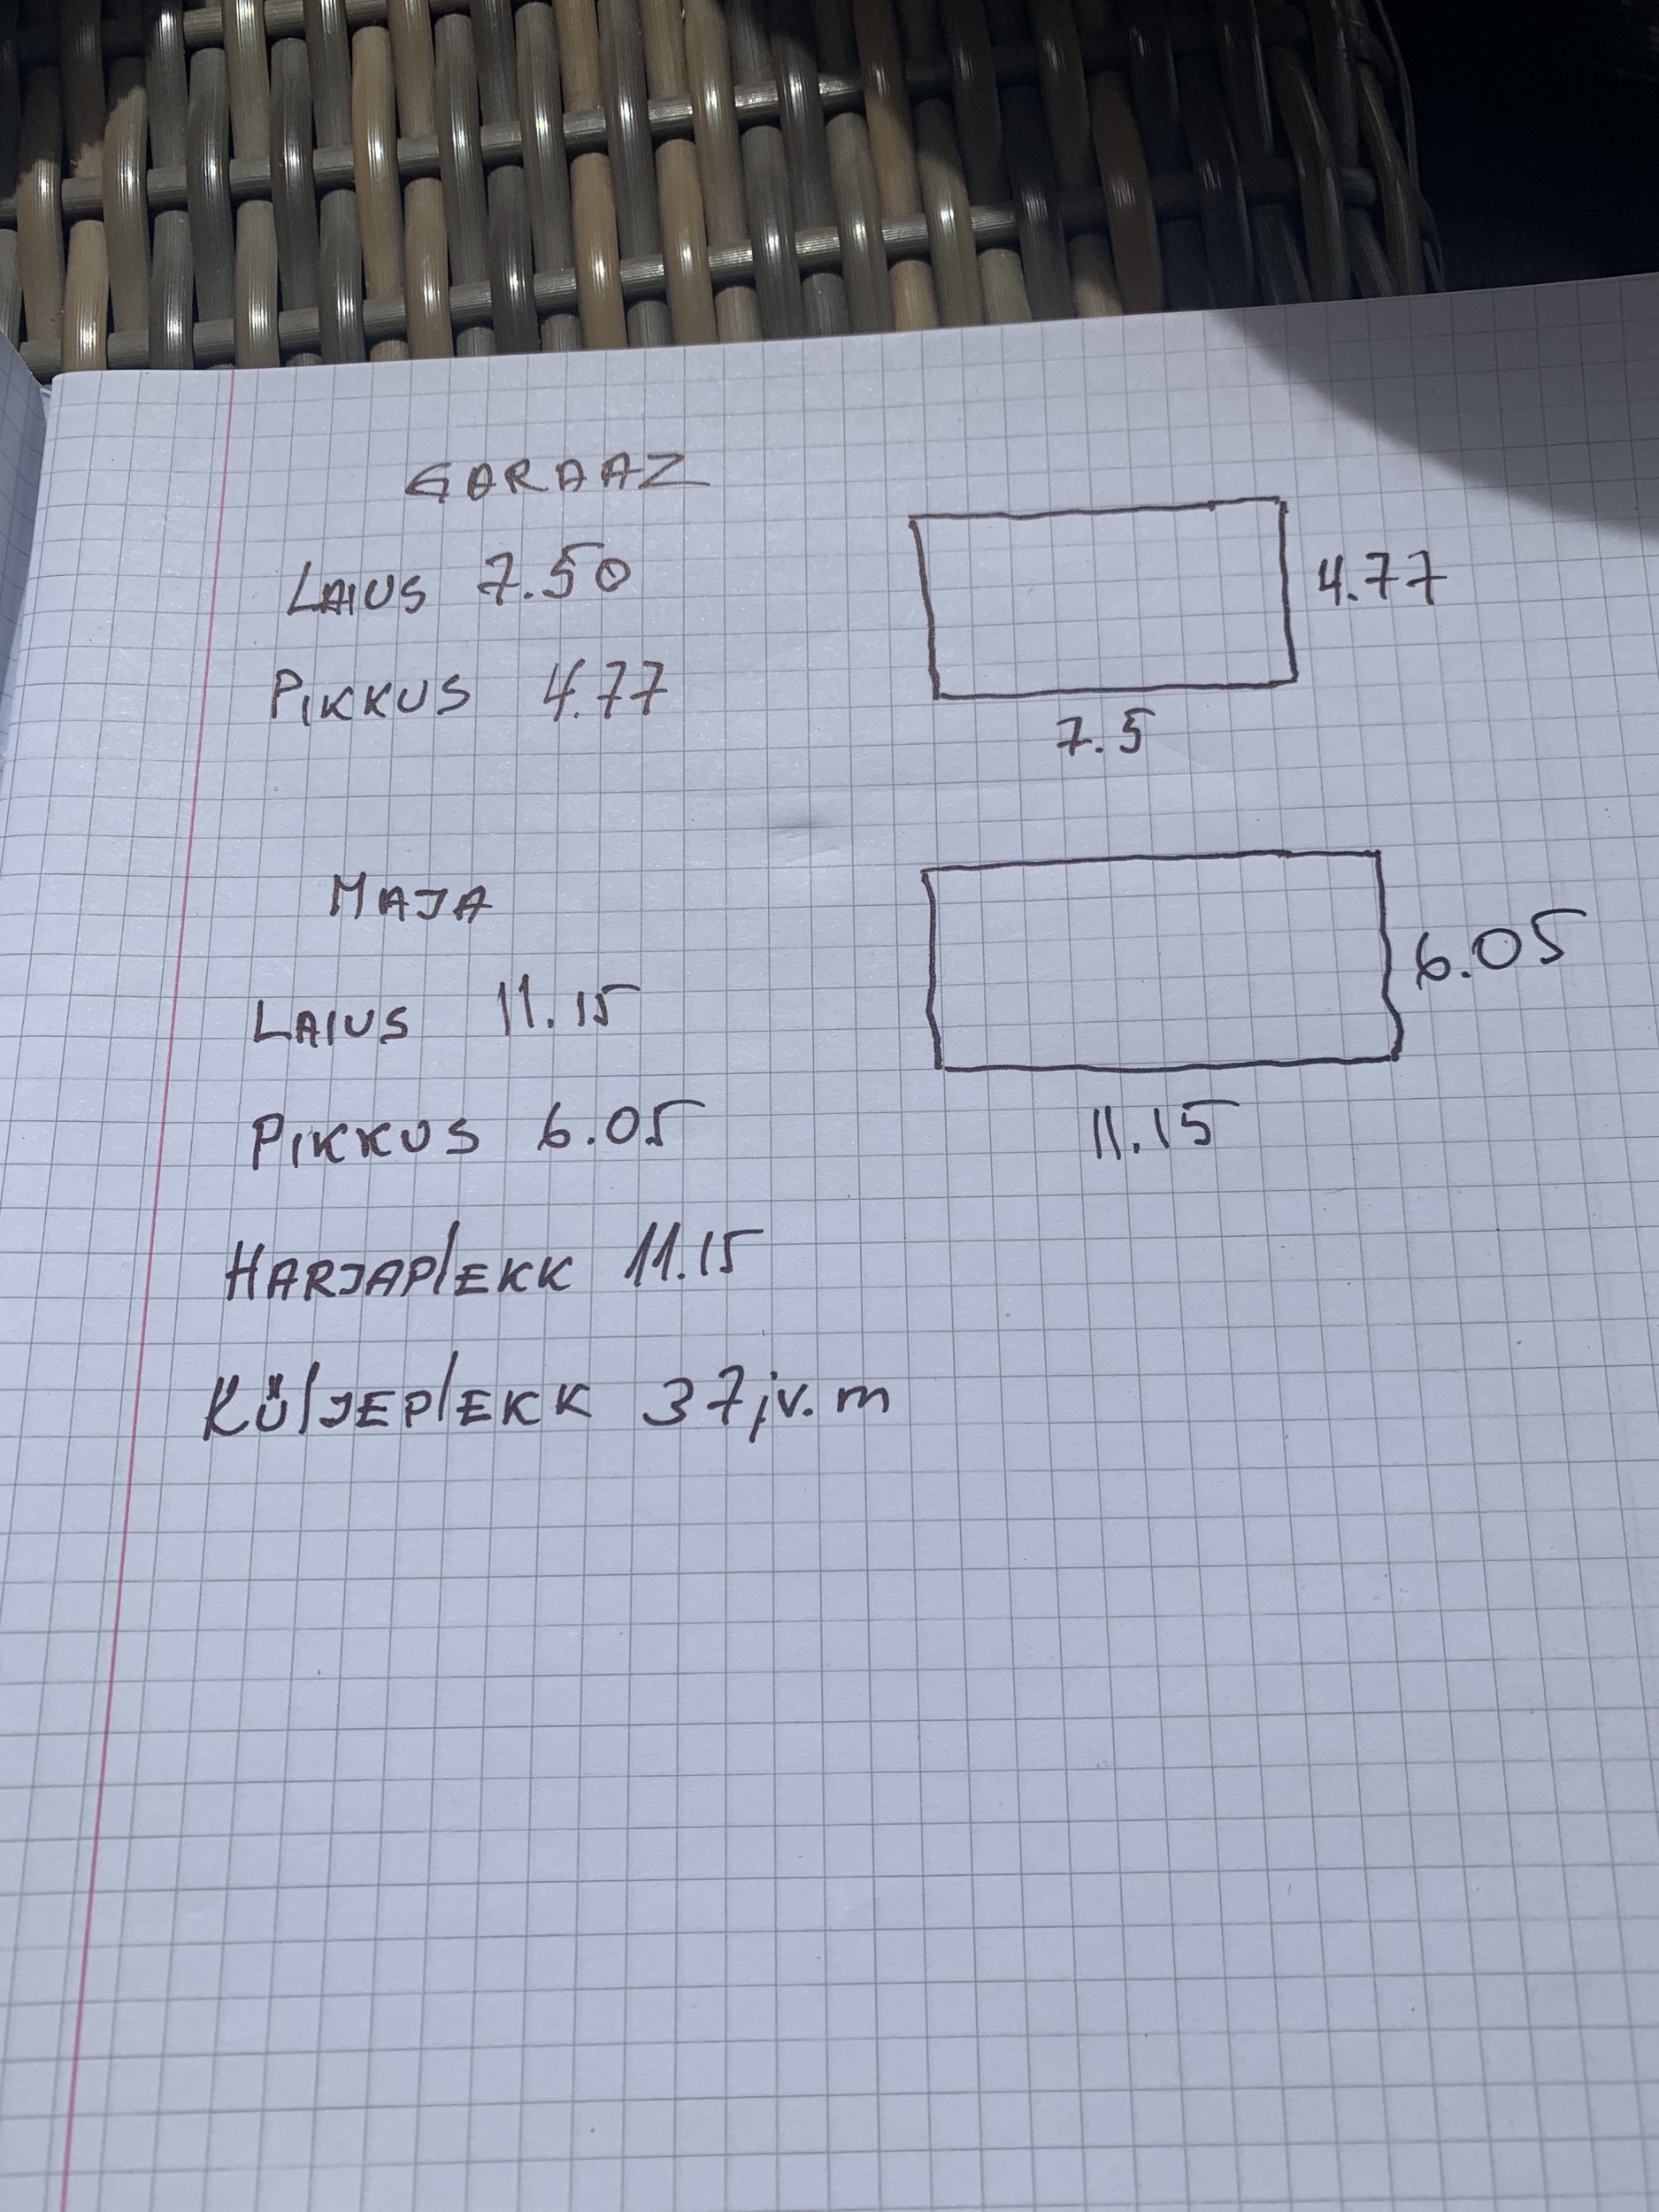 GARAAZ
LAIUS 7.50
4.77
PIKKUS 4.77
7.5
MAJA
6.05
LAIUS 11.15
PIKKUS 6.05
11.15
HARJAPlEKK 11.15
KÜlJEPlEKK 37jv.m